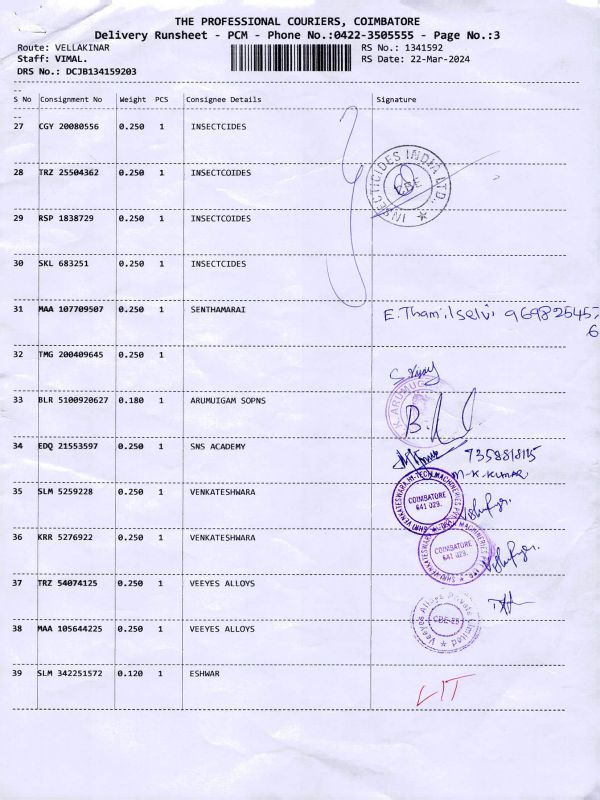 THE PROFESSIONAL COURIERS, COIMBATORE
Delivery Runsheet - PCM - Phone No.:0422-3505555 - Page No.:3
Route: VELLAKINAR RS No.: 1341592
Staff: VIMAL. RS Date: 22-Mar-2024
DRS No.: DCJB134159203
S No Consignment No Weight PCS Consignee Details Signature
27 CGY 20080556 0.250 1 INSECTCIDES
28 TRZ 25504362 0.250 1 INSECTCOIDES
INSECTICIDES INDIA LTD.
CBE
29 RSP 1838729 0.250 1 INSECTCOIDES
30 SKL 683251 0.250 1 INSECTCIDES
31 MAA 107709507 0.250 1 SENTHAMARAI E. Thamilselvi 9698254576
32 TMG 200409645 0.250 1
33 BLR 5100920627 0.180 1 ARUMUIGAM SOPNS
K. ARUMUG
34 EDQ 21553597 0.250 1 SNS ACADEMY
M-K. KUMAR
35 SLM 5259228 0.250 1 VENKATESHWARA
SHRI VENKATESWARA HI-TECH MACHINERIES PVT
COIMBATORE
641 029.
36 KRR 5276922 0.250 1 VENKATESHWARA
COIMBATORE
641 029.
37 TRZ 54074125 0.250 1 VEEYES ALLOYS
38 MAA 105644225 0.250 1 VEEYES ALLOYS
Veeyes Alloys Private Limited
CBE-29
39 SLM 342251572 0.120 1 ESHWAR
LIT